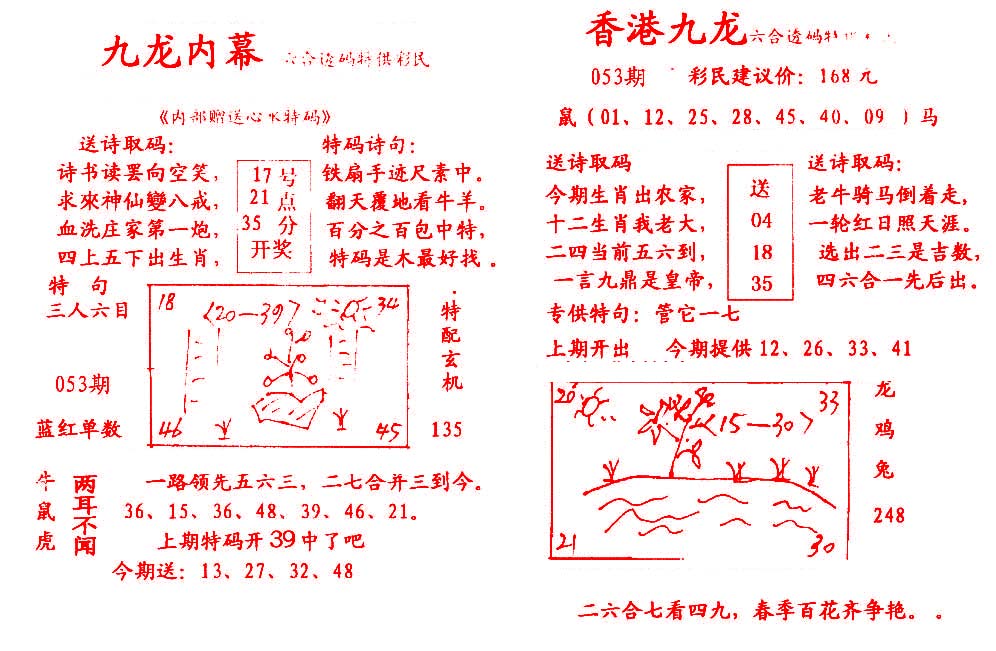 九龙内幕 六合透码特供彩民
《内部赠送心水特码》
送诗取码：
诗书读罢向空笑，
求來神仙變八戒，
血洗庄家第一炮，
四上五下出生肖，
17号
21点
35分
开奖
特码诗句：
铁扇手迹尺素中。
翻天覆地看牛羊。
百分之百包中特，
特码是木最好找。
特句
三人六目
053期
蓝红单数
18
〈20—39〉
34
46
45
特配玄机
135
牛鼠虎
两耳不闻
一路领先五六三，二七合并三到今。
36、15、36、48、39、46、21。
上期特码开39中了吧
今期送：13、27、32、48
香港九龙 六合透码特
053期 彩民建议价：168元
鼠（01、12、25、28、45、40、09 ）马
送诗取码
今期生肖出农家，
十二生肖我老大，
二四当前五六到，
一言九鼎是皇帝，
送
04
18
35
送诗取码：
老牛骑马倒着走，
一轮红日照天涯。
选出二三是吉数，
四六合一先后出。
专供特句：管它一七
上期开出 今期提供12、26、33、41
20
〈15—30〉
33
21
30
龙
鸡
兔
248
二六合七看四九，春季百花齐争艳。。